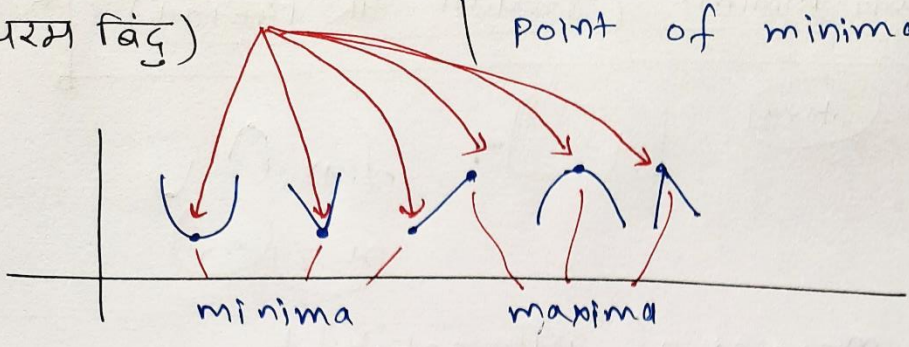 परम बिंदु) | Point of minima
minima maxima